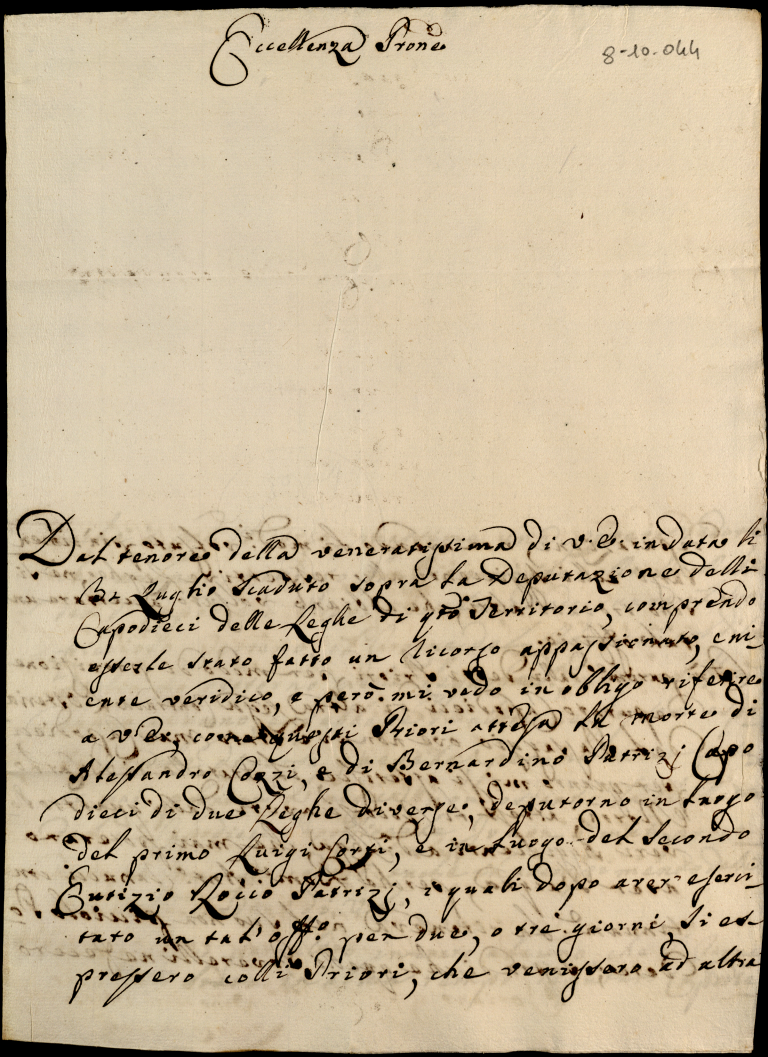 Eccellenza Prone
8-10-044
Dal tenore della veneratissima di V. E. in data li
31 Luglio scaduto sopra la Deputazione delli
Capodieci delle Leghe di qto Territorio, comprendo
esserle stato fatto un ricorso appassionato, e ni-
ente veridico, e però mi vedo in obligo riferire
a V. E., come questi Priori attesa la morte di
Alessandro Corzi, e di Bernardino Patrizj Capo
dieci di due Leghe diverse, deputorno in luogo
del primo Luigi Corzi, e in luogo del secondo
Eutizio Rocio Patrizj, i quali dopo aver eserci-
tato un tal' offo per due, o tre giorni, si es-
pressero colli Priori, che venissero ad altra